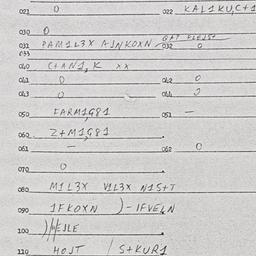 021 0 022 KAL1KU,C+1
030 0
031 PAM1L3X A1NKOXN 032 0
033
040 C+AN1,K XX
041 0 042 0
043 0 044 0
050 FARM1G81 051 -
060 Z+M1G81
061 - 062 0
070 0
080 M1L3X V1L3X N1S+T
090 1FKOXN )-1FVELN
100
110 HOJT / S+KUR1